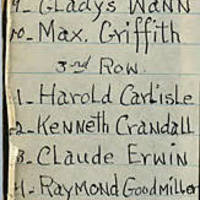 9- Gladys Wann
10- Max. Griffith
3rd Row.
1- Harold Carlisle
2- Kenneth Crandall
3- Claude Erwin
4- Raymond Goodmiller